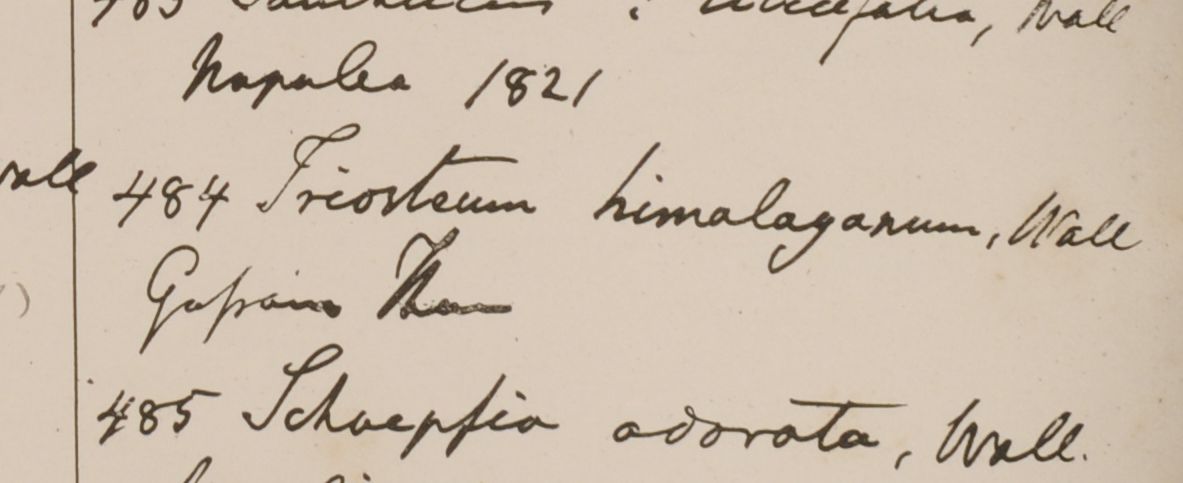 483 ? , Wall
Napalea 1821
Wall
484 Triosteum himalayanum, Wall
Gossain Than
485 Schoepfia odorata, Wall.